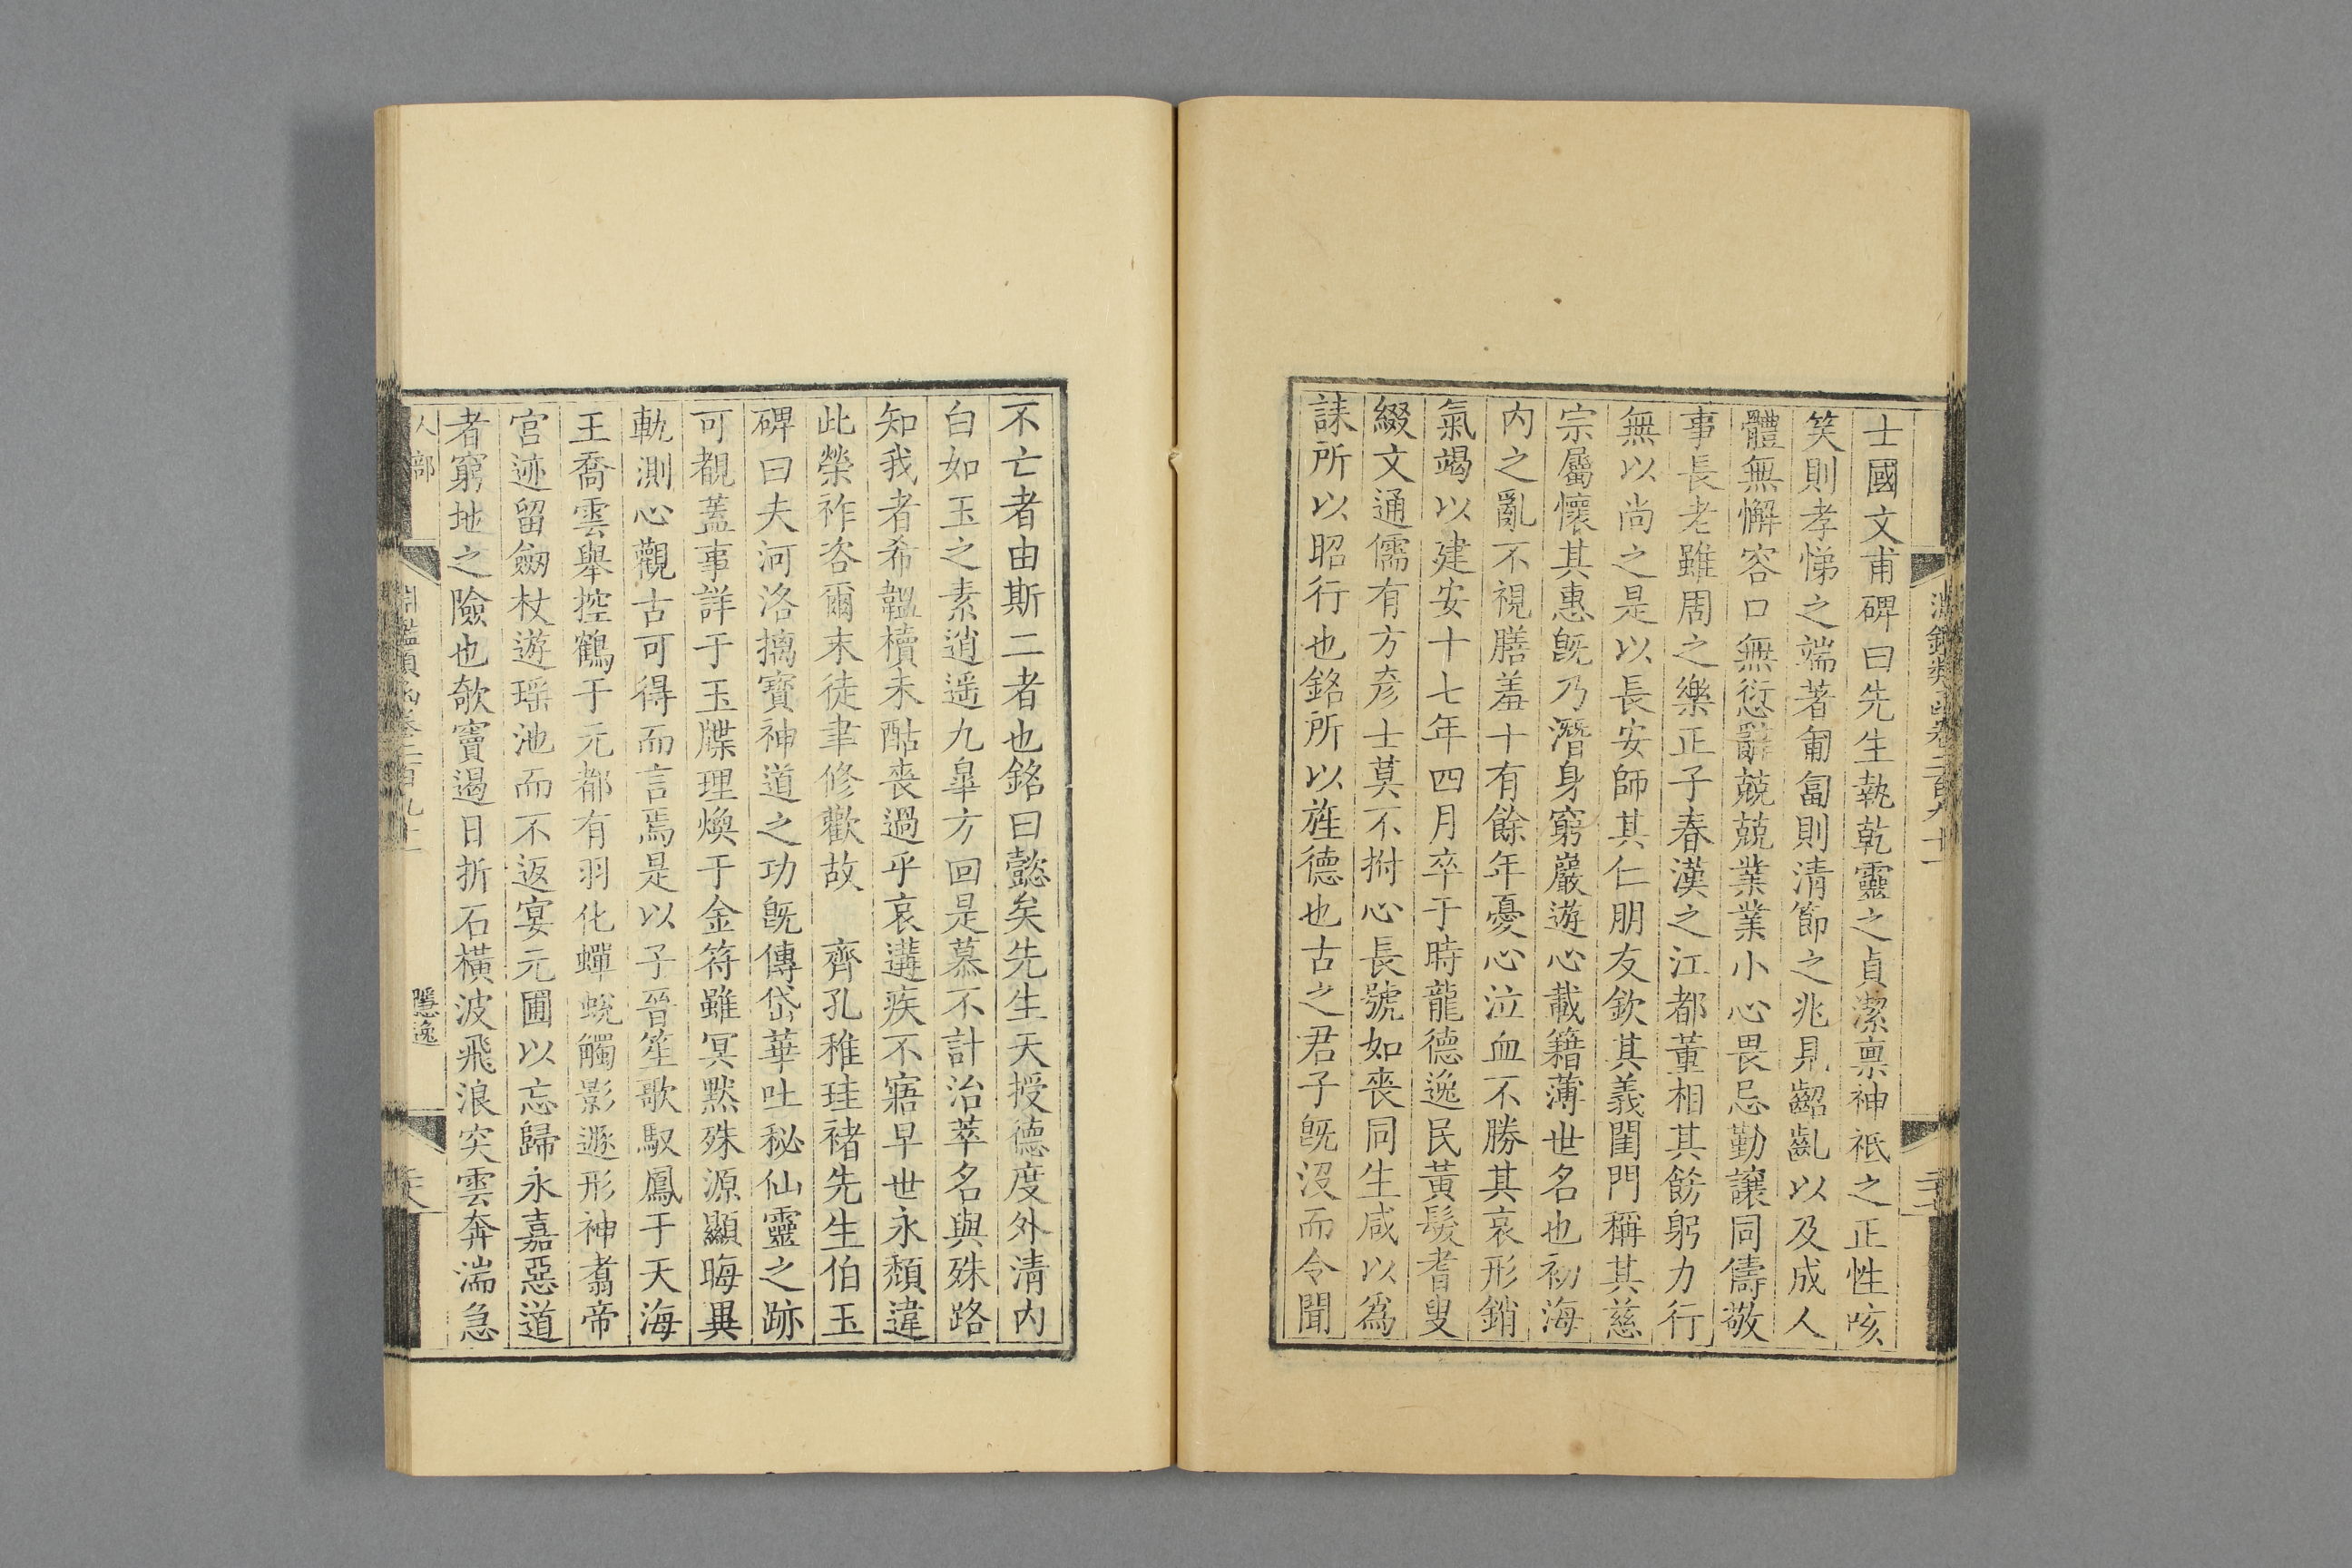 士國文甫碑曰先生執乾靈之貞潔禀神祇之正性咳
笑則孝悌之端著匍匐則清節之兆見齠齓以及成人
體無懈容口無愆辭兢兢業業小心畏忌勤讓同儔敬
事長老雖周之樂正子春漢之江都董相其飭躬力行
無以尚之是以長安師其仁朋友欽其義閨門稱其慈
宗屬懷其惠旣乃潛身窮巖遊心載籍薄世名也初海
内之亂不視膳羞十有餘年憂心泣血不勝其哀形銷
氣竭以建安十七年四月卒于時龍德逸民黃髮耆叟
綴文通儒有方彥士莫不拊心長號如喪同生咸以爲
誄所以昭行也銘所以旌德也古之君子旣沒而令聞
不亡者由斯二者也銘曰懿矣先生天授德度外清内
白如玉之素逍遥九臯方回是慕不計治萃名與殊路
知我者希韞櫝未酤喪過乎哀遘疾不寤早世永頽違
此榮祚咨爾末徒聿修歡故　齊孔稚珪褚先生伯玉
碑曰夫河洛摛寶神道之功旣傳岱華吐秘仙靈之跡
可覩蓋事詳于玉牒理煥于金符雖冥黙殊源顯晦異
軌測心觀古可得而言焉是以子晉笙歌馭鳳于天海
王喬雲舉控鶴于元都有羽化蟬蛻觸影遯形神翥帝
宮迹留劒杖遊瑶池而不返宴元圃以忘歸永嘉惡道
者窮地之險也欹竇遏日折石橫波飛浪突雲奔湍急
人部
淵鑑類函卷二百九十一
隱逸